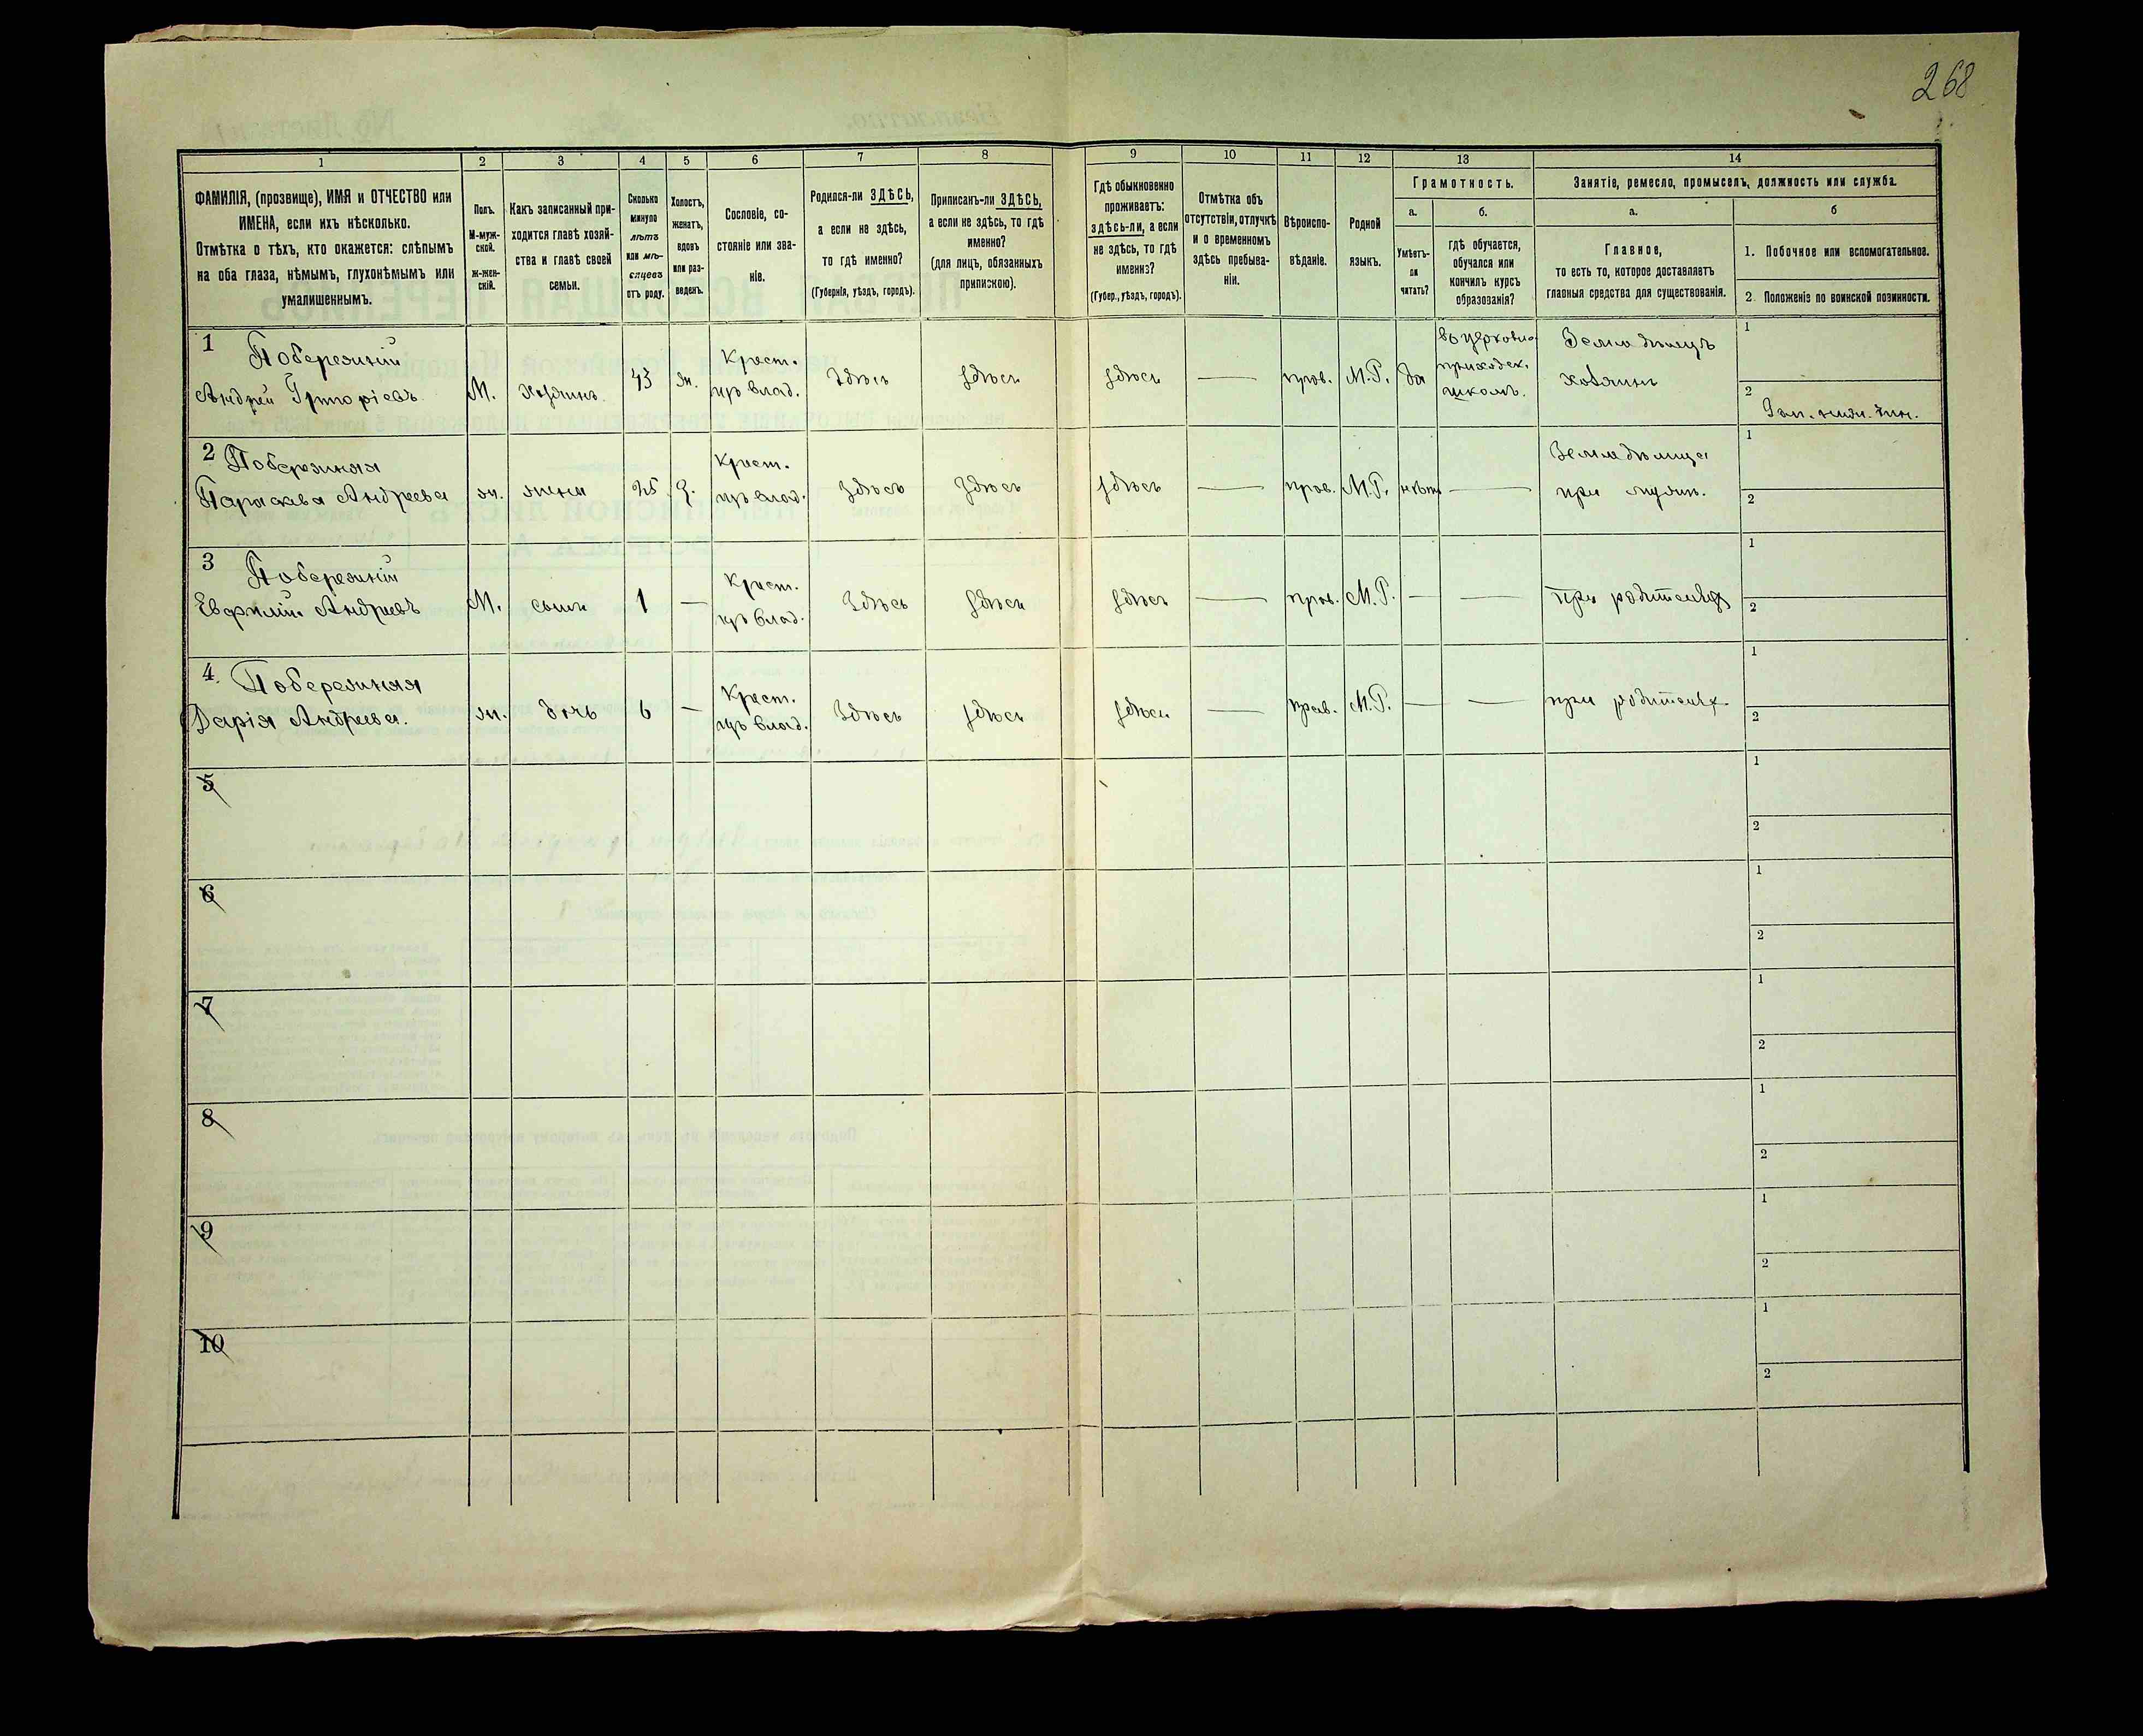 268
1
2
3
4
5
6
7
8
9
10
11
12
13
14
ФАМИЛІЯ, (прозвище), ИМЯ и ОТЧЕСТВО или
ИМЕНА, если ихъ нѣсколько.
Отмѣтка о тѣхъ, кто окажется: слѣпымъ
на оба глаза, нѣмымъ, глухонѣмымъ или
умалишеннымъ.
Полъ.
М-муж-
ской.
Ж-жен-
скій.
Какъ записанный при-
ходится главѣ хозяй-
ства и главѣ своей
семьи.
Сколько
минуло
лѣтъ
или мѣ-
сяцевъ
отъ роду.
Холостъ,
женатъ,
вдовъ
или раз-
веденъ.
Сословіе, со-
стояніе или зва-
ніе.
Родился-ли ЗДѢСЬ,
а если не здѣсь,
то гдѣ именно?
(Губернія, уѣздъ, городъ).
Приписанъ-ли ЗДѢСЬ,
а если не здѣсь, то гдѣ
именно?
(для лицъ, обязанныхъ
припискою).
Гдѣ обыкновенно
проживаетъ:
здѣсь-ли, а если
не здѣсь, то гдѣ
именно?
(Губер., уѣздъ, городъ).
Отмѣтка объ
отсутствіи, отлучкѣ
и о временномъ
здѣсь пребыва-
ніи.
Вѣроиспо-
вѣданіе.
Родной
языкъ.
Грамотность.
а.
Умѣетъ-
ли
читать?
б.
гдѣ обучается,
обучался или
кончилъ курсъ
образованія?
Занятіе, ремесло, промыселъ, должность или служба.
а.
Главное,
то есть то, которое доставляетъ
главныя средства для существованія.
б
1. Побочное или вспомогательное.
2 Положеніе по воинской повинности.
1 Побережный
Андрей Григоріевъ
М.
хозяинъ
43
ж.
Крест.
изъ влад.
Здѣсь
здѣсь
здѣсь
—
прав.
М.Р.
да
въ церковно
приходск.
школѣ.
Земледѣлецъ
хозяинъ
1
2
Зап. нижн. чин.
2 Побережная
Параскева Андреева
ж.
жена
25
З.
Крест.
изъ влад.
Здѣсь
Здѣсь
здѣсь
—
прав.
М.Р.
нѣтъ
—
Земледѣлица
при мужѣ.
1
2
3 Побережный
Евфимій Андреевъ
М.
сынъ
1
—
Крест.
изъ влад.
Здѣсь
здѣсь
здѣсь
—
прав.
М.Р.
—
—
при родителяхъ
1
2
4 Побережная
Дарія Андреева.
ж.
дочь
6
—
Крест.
изъ влад.
Здѣсь
здѣсь
здѣсь
—
прав.
М.Р.
—
—
при родителях
1
2
5
1
2
6
1
2
7
1
2
8
1
2
9
1
2
10
1
2